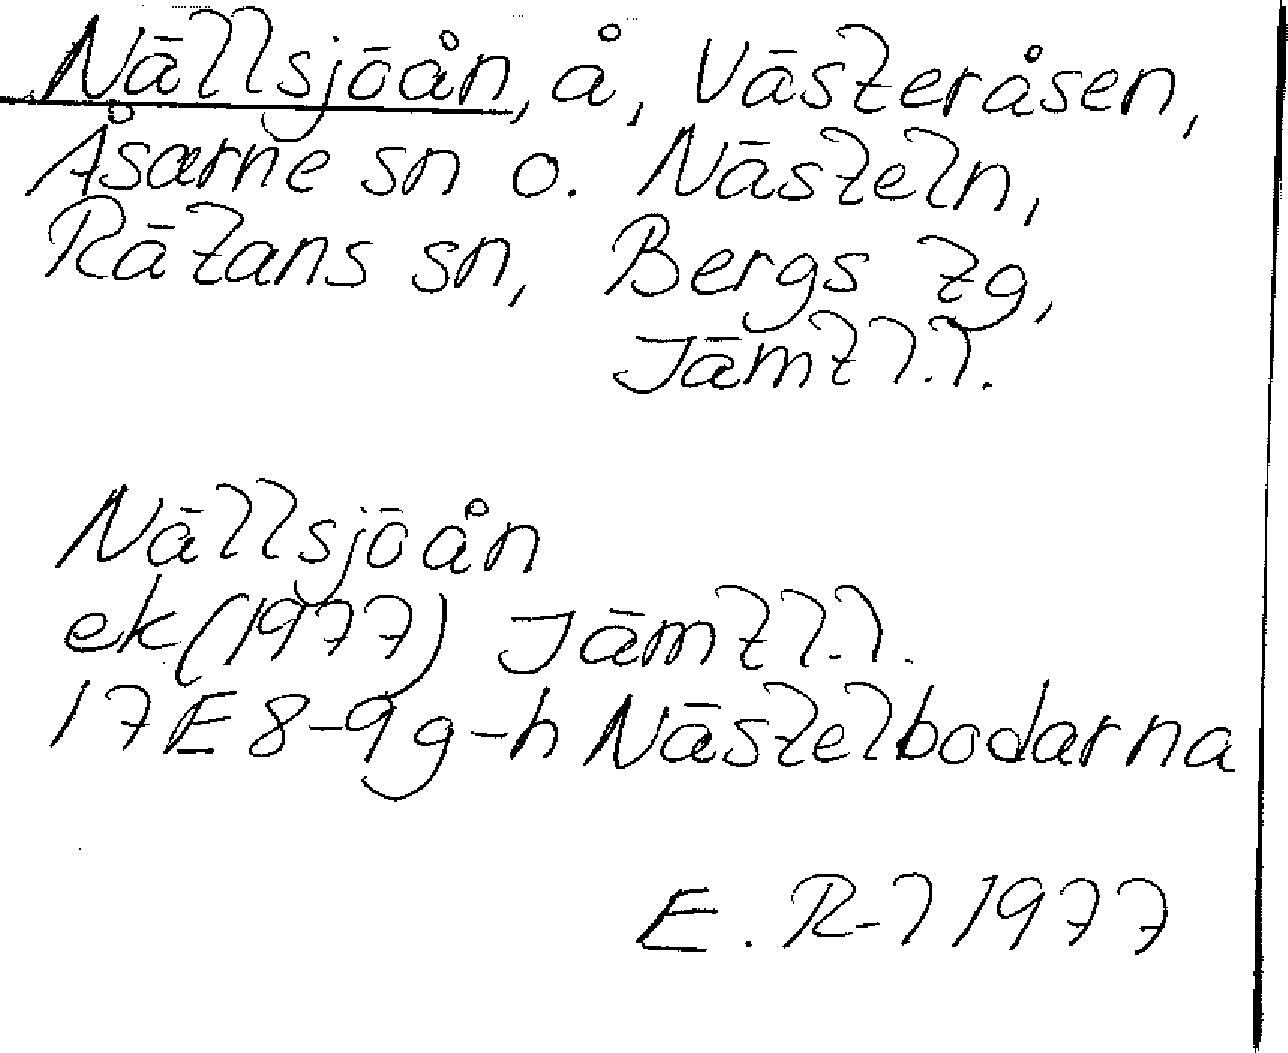 Nällsjöån, å, Västeråsen,
Åsarne sn o. Nästeln,
Rätans sn, Bergs tg,
Jämtl.l.
Nällsjöån
ek (1977) Jämtl.l.
17E 8-9g-h Nästelbodarna
E. R-l 1977